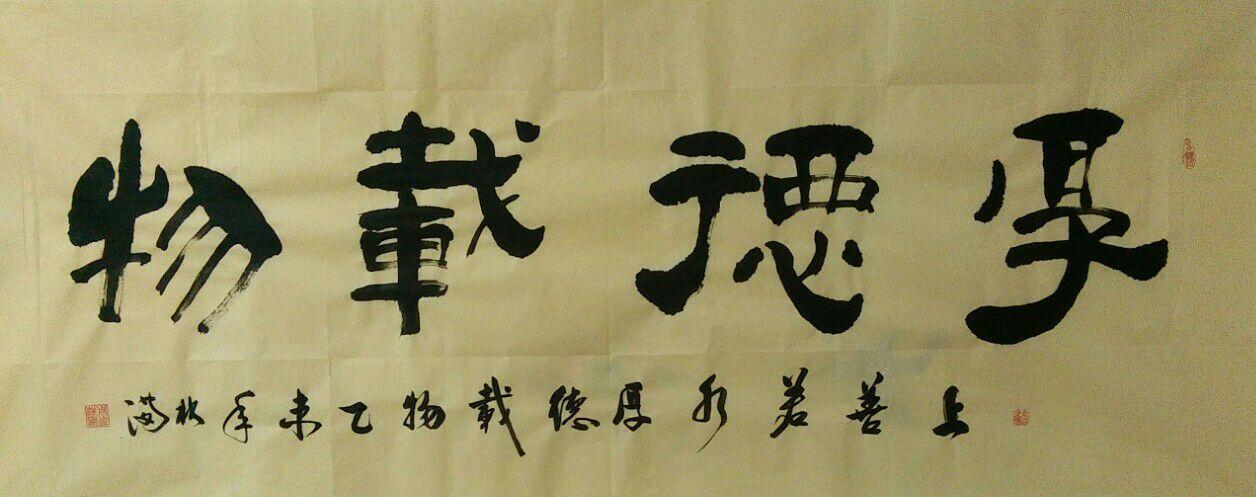 厚德載物
上善若水厚德載物乙未年